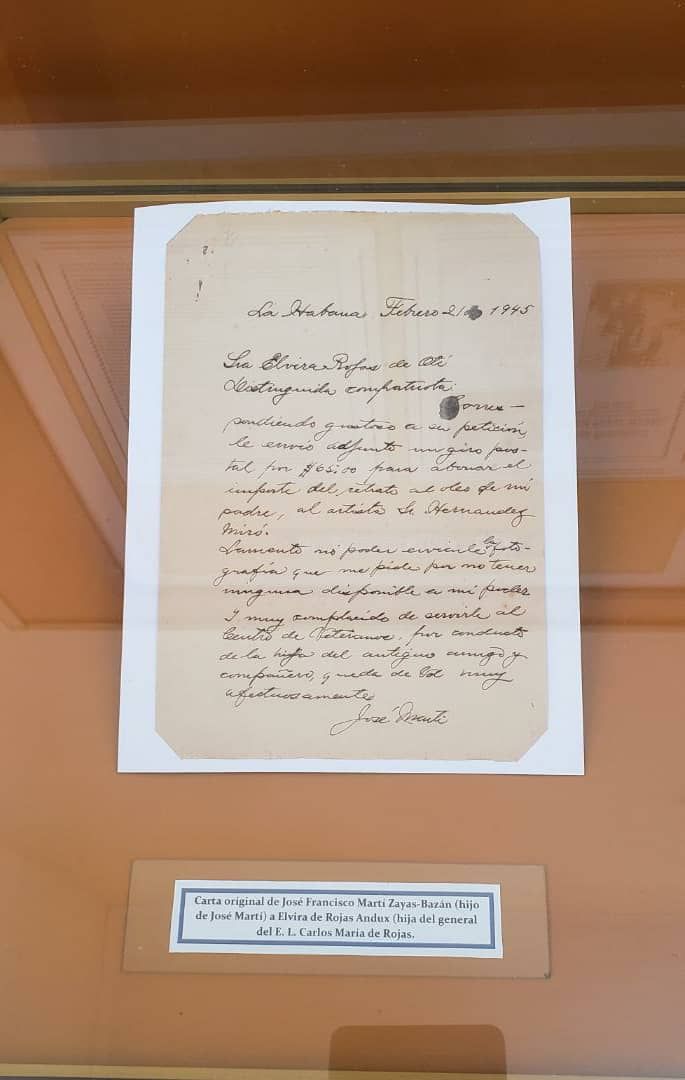 La Habana Febrero 21 1945
Sra Elvira Rojas de Otí
Distinguida compatriota:
Corres-
pondiendo gustoso a su petición,
le envío adjunto un giro pos-
tal por $65.00 para abonar el
importe del retrato al oleo de mi
padre, al artista Sr. Hernandez
Miró.
Lamento no poder enviarle la foto-
grafía que me pide por no tener
ninguna disponible a mi poder
Y muy complacido de servirle al
Centro de Veteranos, por conducto
de la hija del antiguo amigo y
compañero, queda de Vd muy
afectuosamente
José Martí
Carta original de José Francisco Martí Zayas-Bazán (hijo
de José Martí) a Elvira de Rojas Andux (hija del general
del E. L. Carlos María de Rojas.